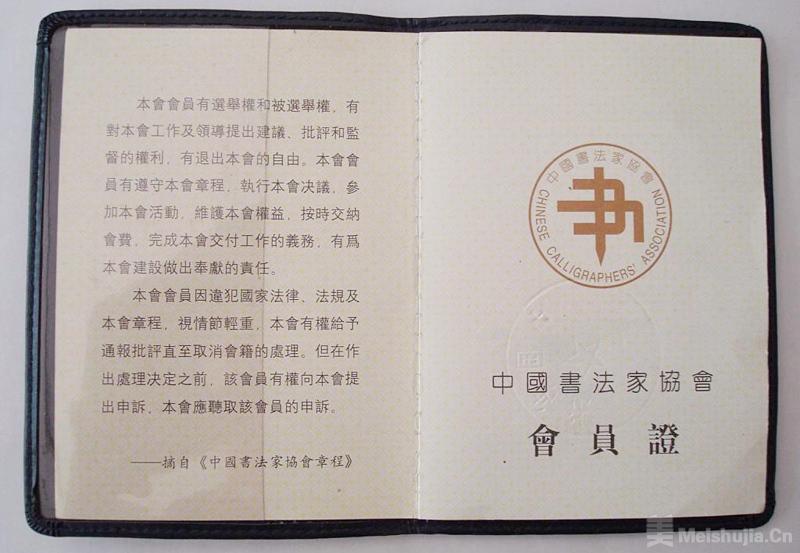 本會會員有選舉權和被選舉權，有
對本會工作及領導提出建議、批評和監
督的權利，有退出本會的自由。本會會
員有遵守本會章程，執行本會决議，參
加本會活動，維護本會權益，按時交納
會費，完成本會交付工作的義務，有爲
本會建設做出奉獻的責任。
本會會員因違犯國家法律、法規及
本會章程，視情節輕重，本會有權給予
通報批評直至取消會籍的處理。但在作
出處理决定之前，該會員有權向本會提
出申訴，本會應聽取該會員的申訴。
——摘自《中國書法家協會章程》
中國書法家協會
CHINESE CALLIGRAPHERS' ASSOCIATION
中國書法家協會
會員證
美 Meishujia.Cn